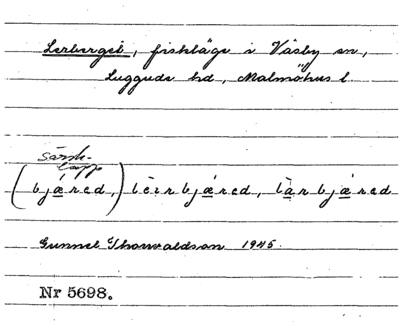 Lerberget, fiskläge i Väsby sn,
Luggude hd, Malmöhus l.
särsk.
lapp
(bjæ̀red,) lèirbjæ̀red, làrbjæ̀red
Gunnel Thorvaldson 1945.
Nr 5698.